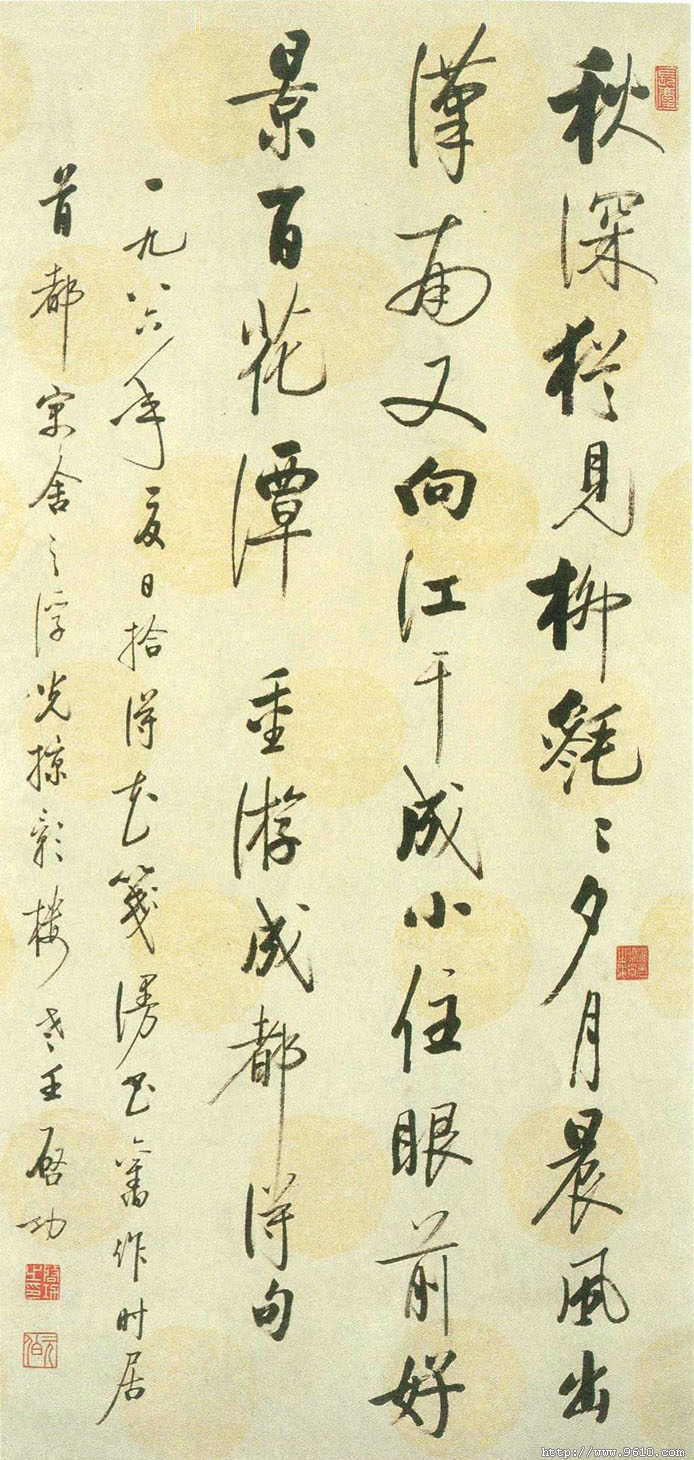 秋深猶見柳毿〻夕月晨風出
漢南又向江干成小住眼前好
景百花潭 重游成都得句
一九八六年夏日拾得花箋漫书舊作时居
首都舍之浮光掠影樓啟功
http://www.9610.com